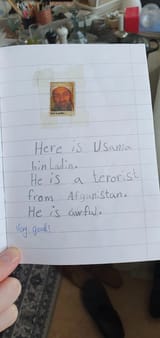 Here is Usama
bin Ladin.
He is a terorist
from Afganistan.
He is awful.
Very good!